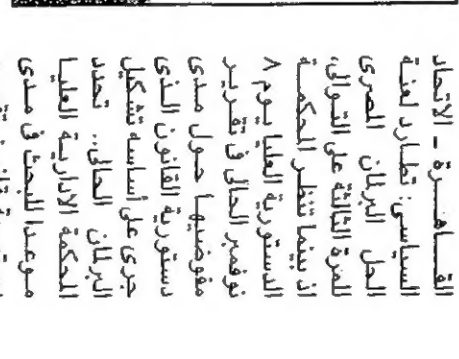 القاهرة - الاتحاد
السياسى: تطارد لعنة
الحل البرلمان المصرى
للمرة الثالثة على التوالى،
اذ بينما تنظر المحكمة
الدستورية العليا يوم ٨
نوفمبر الحالى فى تقرير
مفوضيها حول مدى
دستورية القانون الذى
جرى على أساسه تشكيل
البرلمان الحالى، تحدد
المحكمة الادارية العليا
موعدا للبحث فى مدى